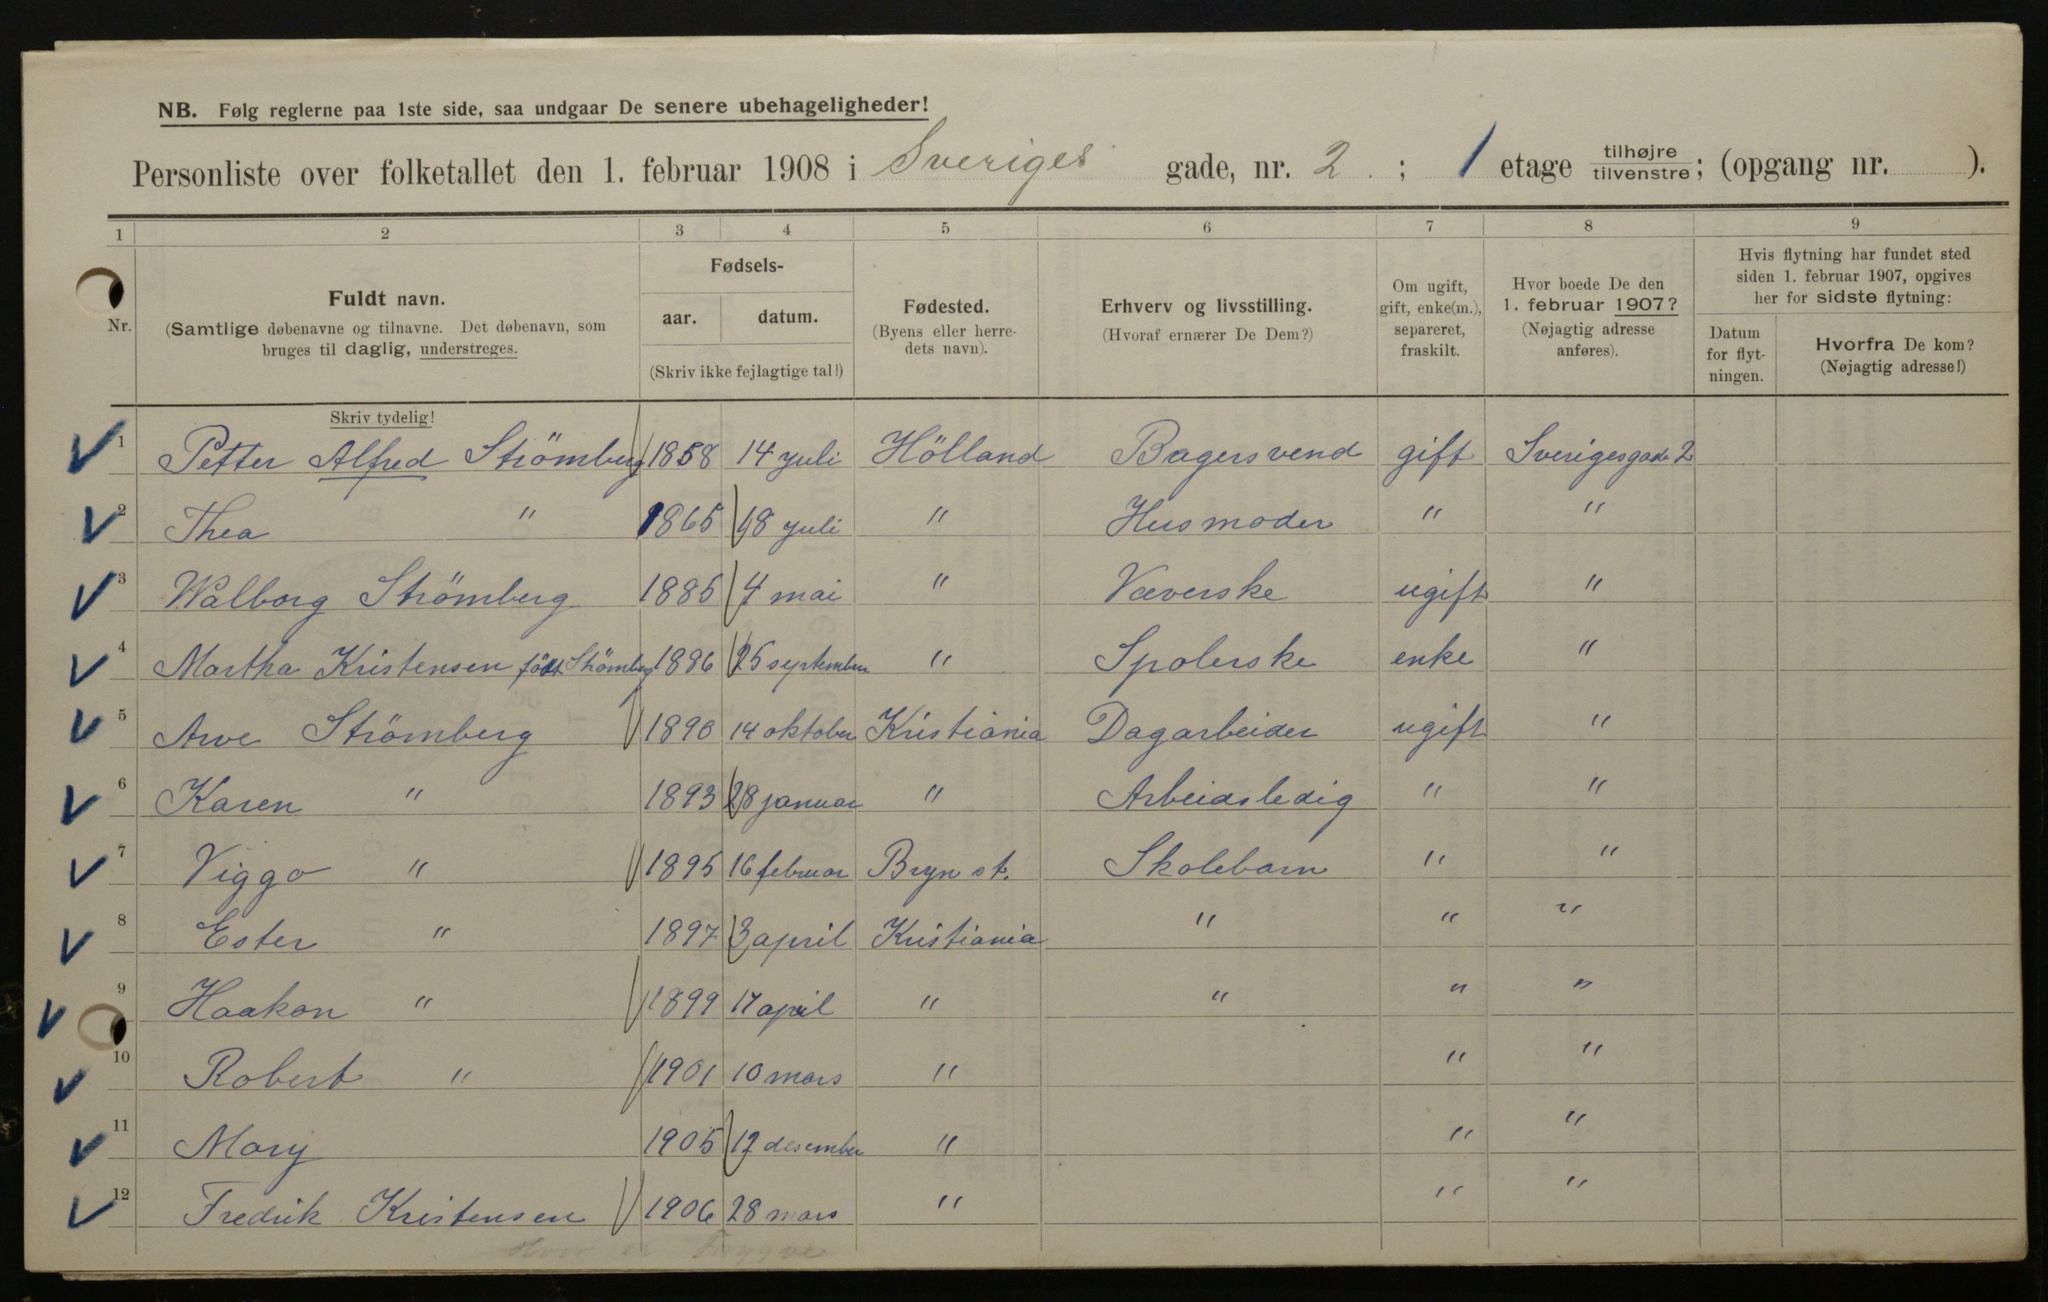 NB. Følg reglerne paa 1ste side, saa undgaar De senere ubehageligheder!
Personliste over folketallet den 1. februar 1908 i Sveriges gade, nr. 2 ; 1 etage tilhøjre tilvenstre ; (opgang nr. ).
1 2 3 4 5 6 7 8 9
Nr.
Fuldt navn.
(Samtlige døbenavne og tilnavne. Det døbenavn, som
bruges til daglig, understreges.
Skriv tydelig!
Fødsels-
aar. datum.
(Skriv ikke fejlagtige tal!)
Fødested.
(Byens eller herre-
dets navn).
Erhverv og livsstilling.
(Hvoraf ernærer De Dem?)
Om ugift,
gift, enke(m.),
separeret,
fraskilt.
Hvor boede De den
1. februar 1907?
(Nøjagtig adresse
anføres).
Hvis flytning har fundet sted
siden 1. februar 1907, opgives
her for sidste flytning:
Datum
for flyt-
ningen.
Hvorfra De kom?
(Nøjagtig adresse!)
1 Petter Alfred Strömberg 1858 14 juli Hölland Bagersvend gift Sverigesgade 2
2 Thea " 1865 18 juli " Husmoder " "
3 Walborg Strömberg 1885 4 mai " Væverske ugift "
4 Martha Kristensen född Strömberg 1886 25 september " Spolerske enke "
5 Arve Strömberg 1890 14 oktober Kristiania Dagarbeider ugift "
6 Karen " 1893 28 januar " Arbeidsledig " "
7 Viggo " 1895 16 februar Bryn st. Skolebarn " "
8 Ester " 1897 3 april Kristiania " " "
9 Haakon " 1899 17 april " " " "
10 Robert " 1901 10 mars " " "
11 Mary 1905 12 desember " " "
12 Fredrik Kristensen 1906 28 mars " " "
Hvor er Trygve